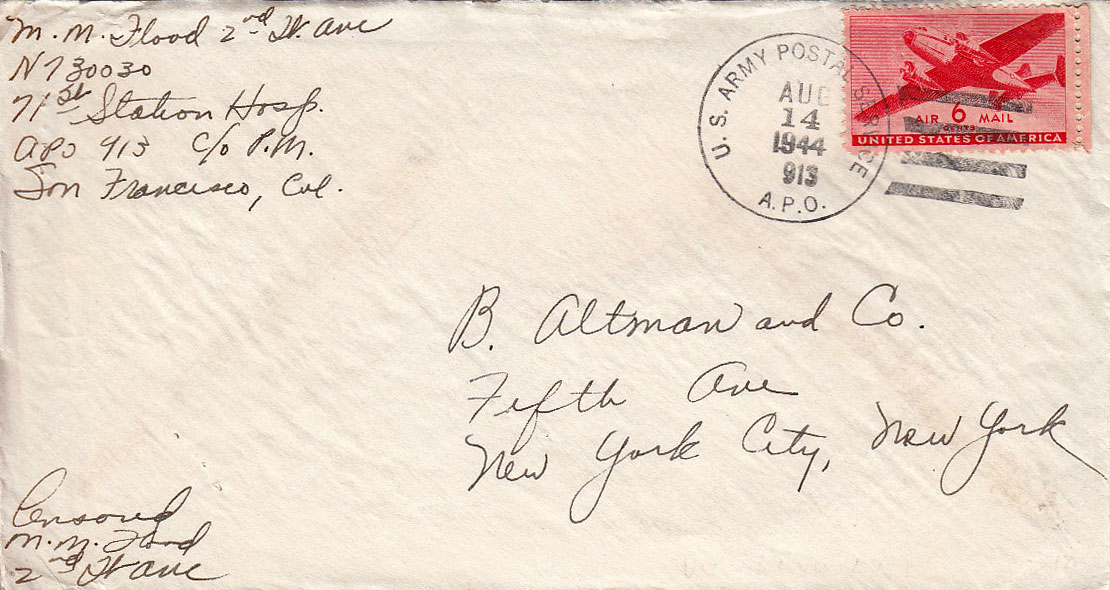 M. M. Flood 2nd Lt. ANC
N730030
71st Station Hosp.
APO 913 c/o P.M.
San Francisco, Cal.
U. S. ARMY POSTAL SERVICE
AUG
14
1944
913
A.P.O.
AIR 6 MAIL
CENTS
UNITED STATES OF AMERICA
B. Altman and Co.
Fifth Ave
New York City, New York
Censored
M. M. Flood
2nd Lt ANC